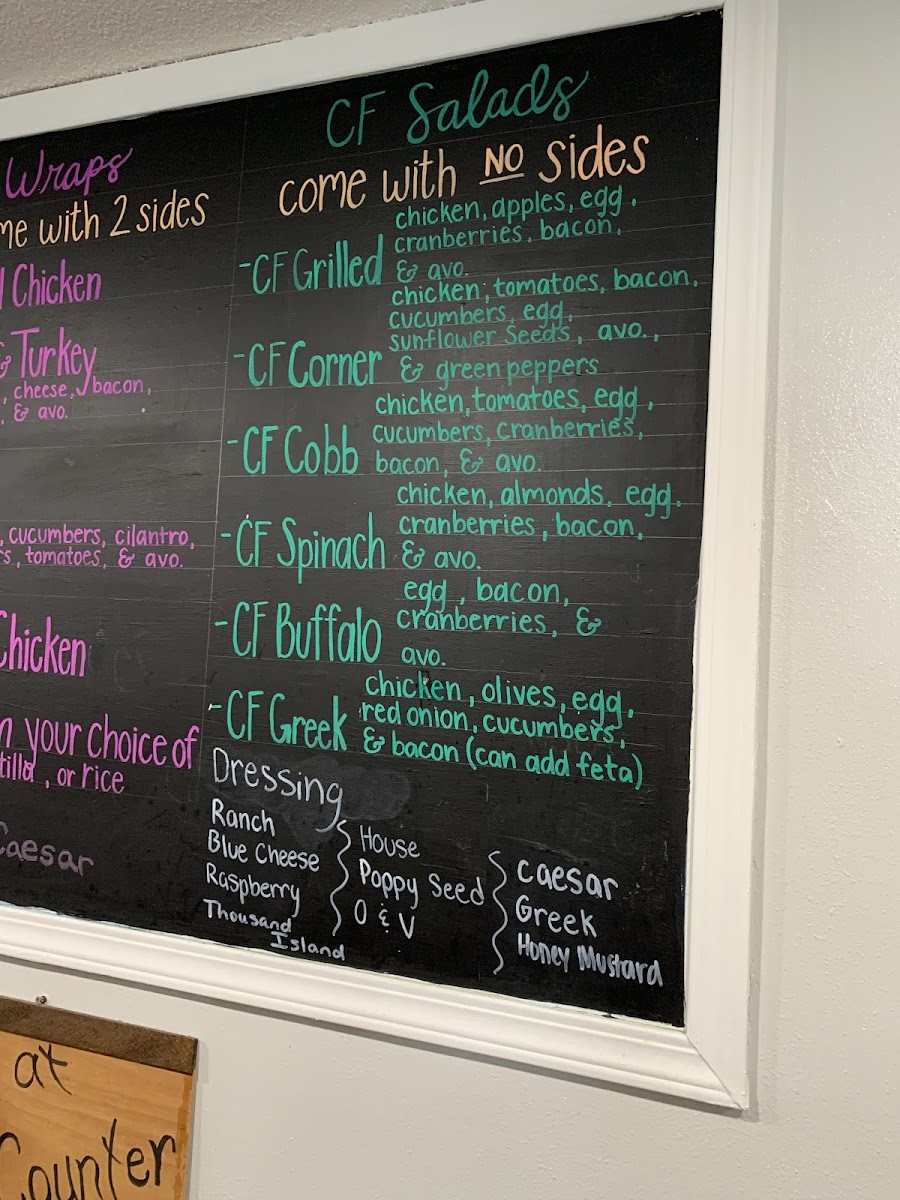 Wraps
me with 2 sides
Chicken
& Turkey
, cheese, bacon,
, & avo.
, cucumbers, cilantro,
rs, tomatoes, & avo.
Chicken
n your choice of
tilla, or rice
Caesar
CF Salads
come with NO sides
chicken, apples, egg,
cranberries, bacon,
-CF Grilled & avo.
chicken, tomatoes, bacon,
cucumbers, egg,
sunflower seeds, avo.,
-CF Corner & green peppers
chicken, tomatoes, egg,
cucumbers, cranberries,
-CF Cobb bacon, & avo.
chicken, almonds, egg,
cranberries, bacon,
-CF Spinach & avo.
egg, bacon,
cranberries, &
-CF Buffalo avo.
chicken, olives, egg,
red onion, cucumbers,
-CF Greek & bacon (can add feta)
Dressing
Ranch
Blue Cheese
Raspberry
Thousand
Island
House
Poppy Seed
O & V
Caesar
Greek
Honey Mustard
at
Counter